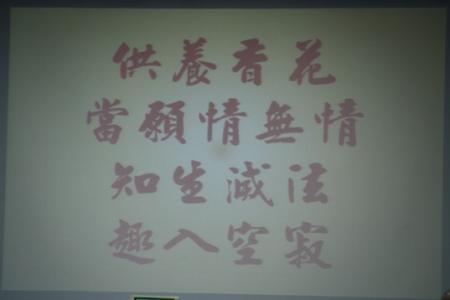 供養香花
當願情無情
知生滅法
趣入空寂